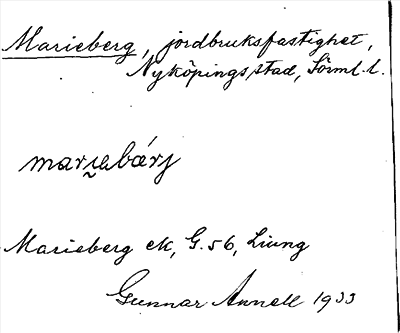 Marieberg, jordbruksfastighet,
Nyköpings stad, Sörml. l.
mari̯ebárj
Marieberg ek, G. 56, Liung
Gunnar Annell 1933